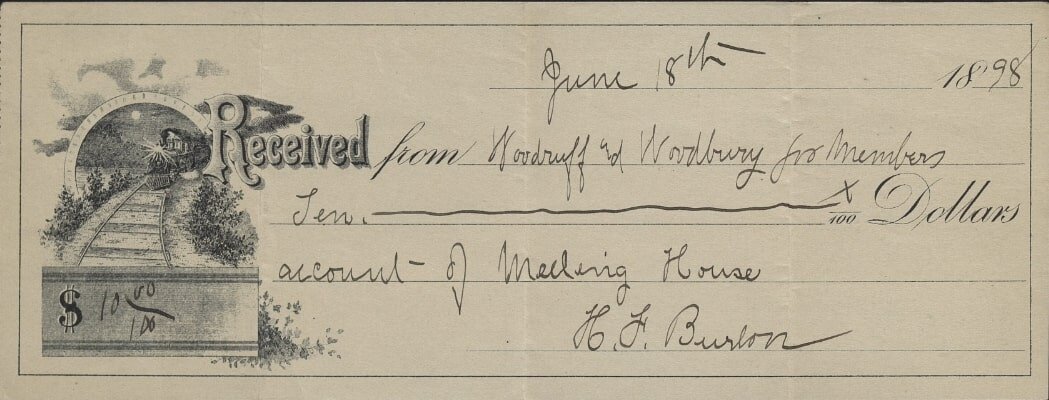 June 18th 1898
Received from Woodruff and Woodbury for Members
Ten. X/100 Dollars
account of Meeting House
$ 10 00/100
H. F. Burton